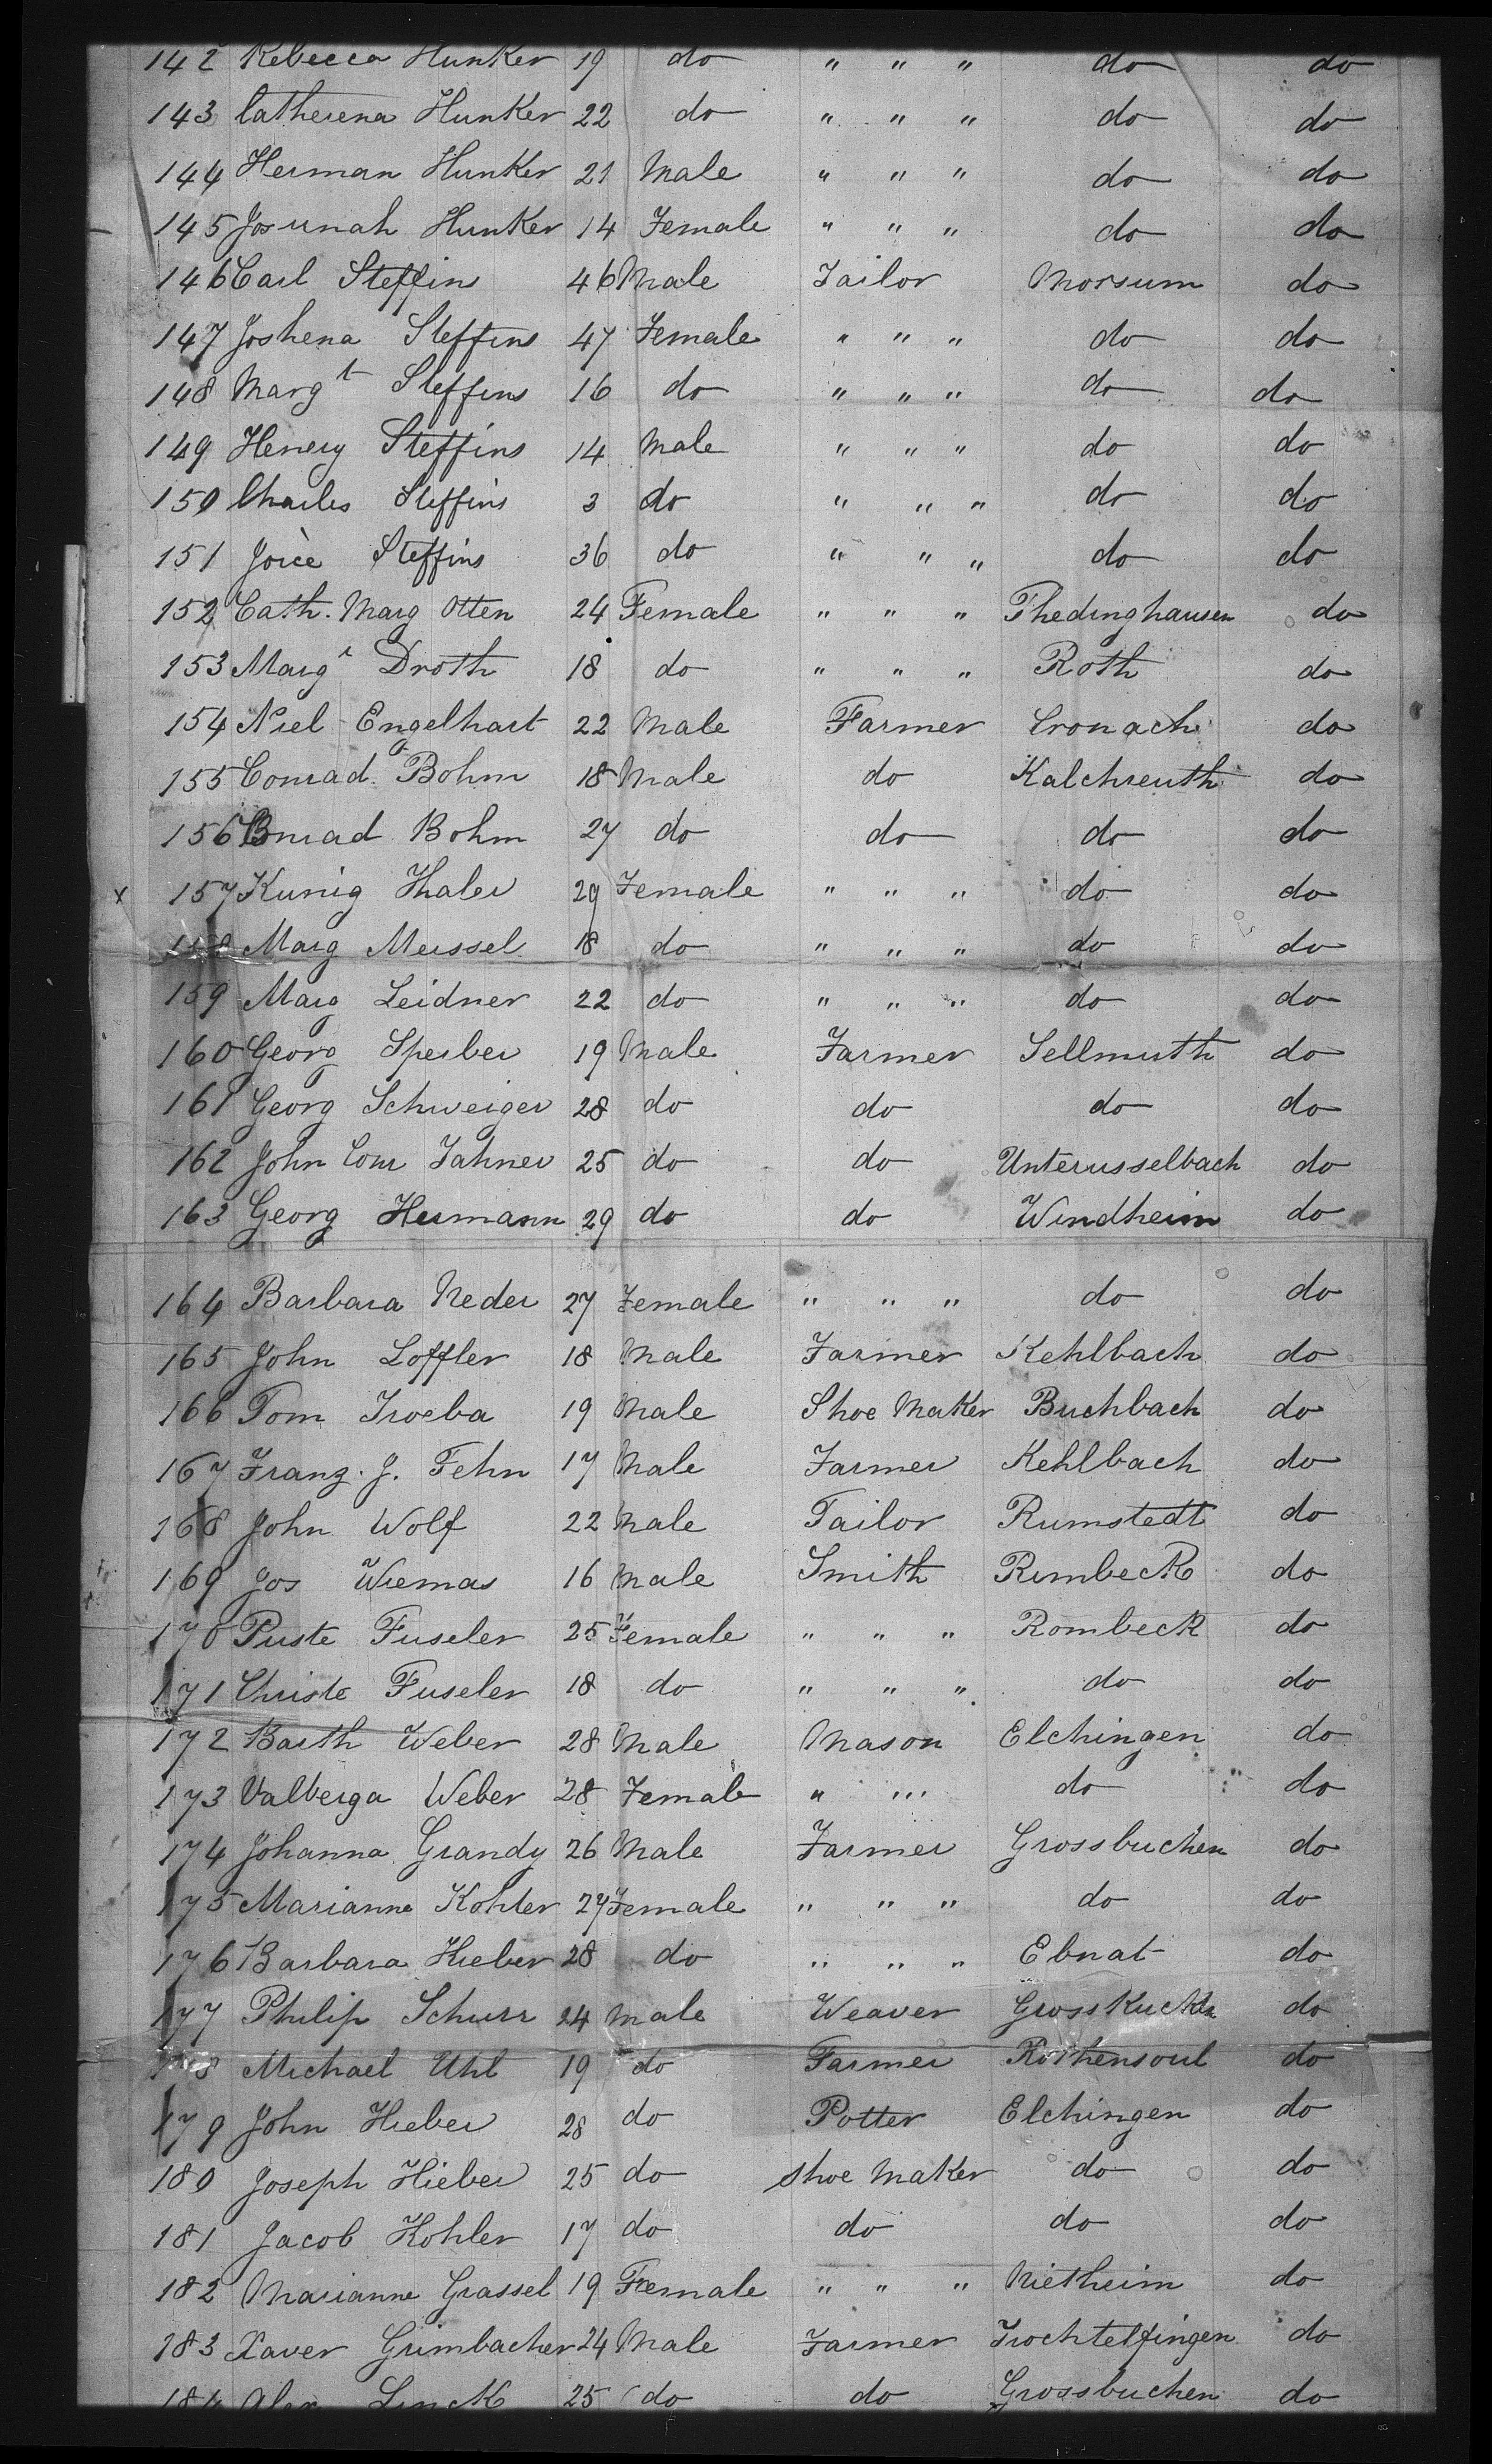 142 Rebecca Hunker 19 do " " " do do
143 Catherena Hunker 22 do " " " do do
144 Herman Hunker 21 Male " " " do do
145 Josunah Hunker 14 Female " " " do do
146 Carl Steffins 46 Male Tailor Morsum do
147 Joshena Steffins 47 Female " " " do do
148 Margt Steffins 16 do " " " do do
149 Henery Steffins 14 Male " " " do do
150 Charles Steffins 3 do " " " do do
151 Joice Steffins 36 do " " " do do
152 Cath. Marg Otten 24 Female " " " Thedinghausen do
153 Margt Droth 18 do " " " Roth do
154 Niel Engelhart 22 Male Farmer Cronach do
155 Conrad Bohm 18 Male do Kalchreuth do
156 Conrad Bohm 27 do do do do
x 157 Kunig Thaler 29 Female " " " do do
158 Marg Meissel 18 do " " " do do
159 Marg Leidner 22 do " " " do do
160 Georg Sperber 19 Male Farmer Sellmuth do
161 Georg Schweiger 28 do do do do
162 John Conr Jahner 25 do do Unterusselbach do
163 Georg Hermann 29 do do Windheim do
164 Barbara Neder 27 Female " " " do do
165 John Loffler 18 Male Farmer Kehlbach do
166 Tom Troeba 19 Male Shoe Maker Buchbach do
167 Franz. J. Fehn 17 Male Farmer Kehlbach do
168 John Wolf 22 Male Tailor Rumstedt do
169 Jos Wiemas 16 Male Smith Rimbeck do
170 Puste Fuseler 25 Female " " " Rombeck do
171 Christe Fuseler 18 do " " " do do
172 Barth Weber 28 Male Mason Elchingen do
173 Valberga Weber 28 Female " " do do
174 Johanna Grandy 26 Male Farmer Grossbuchen do
175 Marianne Kohler 27 Female " " " do do
176 Barbara Hieber 28 do " " " Ebnat do
177 Philip Schurr 24 Male Weaver Grosskuchn do
178 Michael Uhl 19 do Farmer Rothensoul do
179 John Hieber 28 do Potter Elchingen do
180 Joseph Hieber 25 do Shoe Maker do do
181 Jacob Kohler 17 do do do do
182 Marianne Grassel 19 Female " " " Nietheim do
183 Xaver Grimbacher 24 Male Farmer Trochtelfingen do
184 Alex Linck 25 do do Grossbuchen do